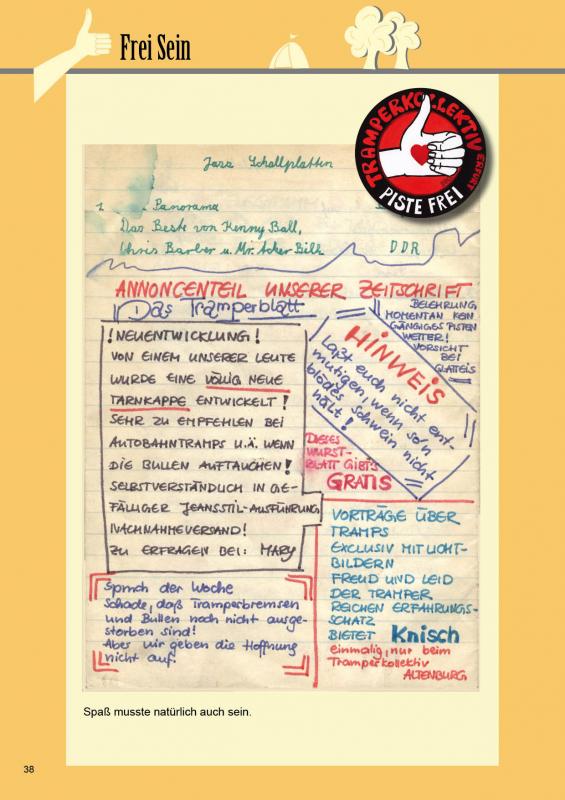 Frei Sein
TRAMPERKOLLEKTIV ERFURT
PISTE FREI
Jazz Schallplatten
1. Panorama
Das Beste von Kenny Ball,
Chris Barber u. Mr. Acker Bilk
DDR
ANNONCENTEIL UNSERER ZEITSCHRIFT
Das Tramperblatt
BELEHRUNG
MOMENTAN KEIN
GÄNGIGES PISTEN
WETTER!
VORSICHT
BEI
GLATTEIS
! NEUENTWICKLUNG !
VON EINEM UNSERER LEUTE
WURDE EINE VÖLLIG NEUE
TARNKAPPE ENTWICKELT !
SEHR ZU EMPFEHLEN BEI
AUTOBAHNTRAMPS U.Ä. WENN
DIE BULLEN AUFTAUCHEN !
SELBSTVERSTÄNDLICH IN GE-
FÄLLIGER JEANSSTIL-AUSFÜHRUNG
NACHNAHMEVERSAND!
ZU ERFRAGEN BEI: MARY
HINWEIS
Laßt euch nicht ent-
mutigen, wenn so'n
blödes Schwein nicht
hält !
DIESES
WURST-
BLATT GIBT'S
GRATIS
VORTRÄGE ÜBER
TRAMPS
EXCLUSIV MIT LICHT-
BILDERN
FREUD UND LEID
DER TRAMPER
REICHEN ERFAHRUNGS-
SCHATZ
BIETET Knisch
einmalig, nur beim
Tramperkollektiv
ALTENBURG
Spruch der Woche
Schade, daß Tramperbremsen
und Bullen noch nicht ausge-
storben sind!
Aber wir geben die Hoffnung
nicht auf.
Spaß musste natürlich auch sein.
38